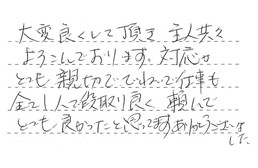 大変良くして頂き 主人共々
よろこんでおります。対応が
とても親切で ていねいで仕事も
全て1人で段取り良く 頼んで
とても良かったと思ってますありがとうございま
した